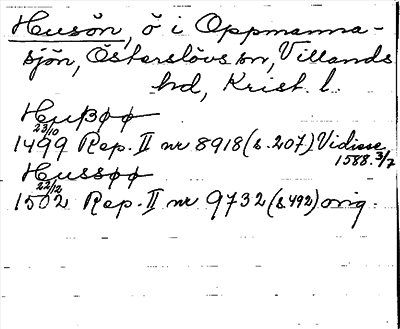 Husön, ö i Oppmanna-
sjön, Österslövs sn, Villands
hd, Krist. l.
Hußøø
23/10
1499 Rep. II nr 8918 (s. 207) Vidisse
1588 3/7
Hussøø
22/12
1502 Rep. II nr 9732 (s 492) orig.